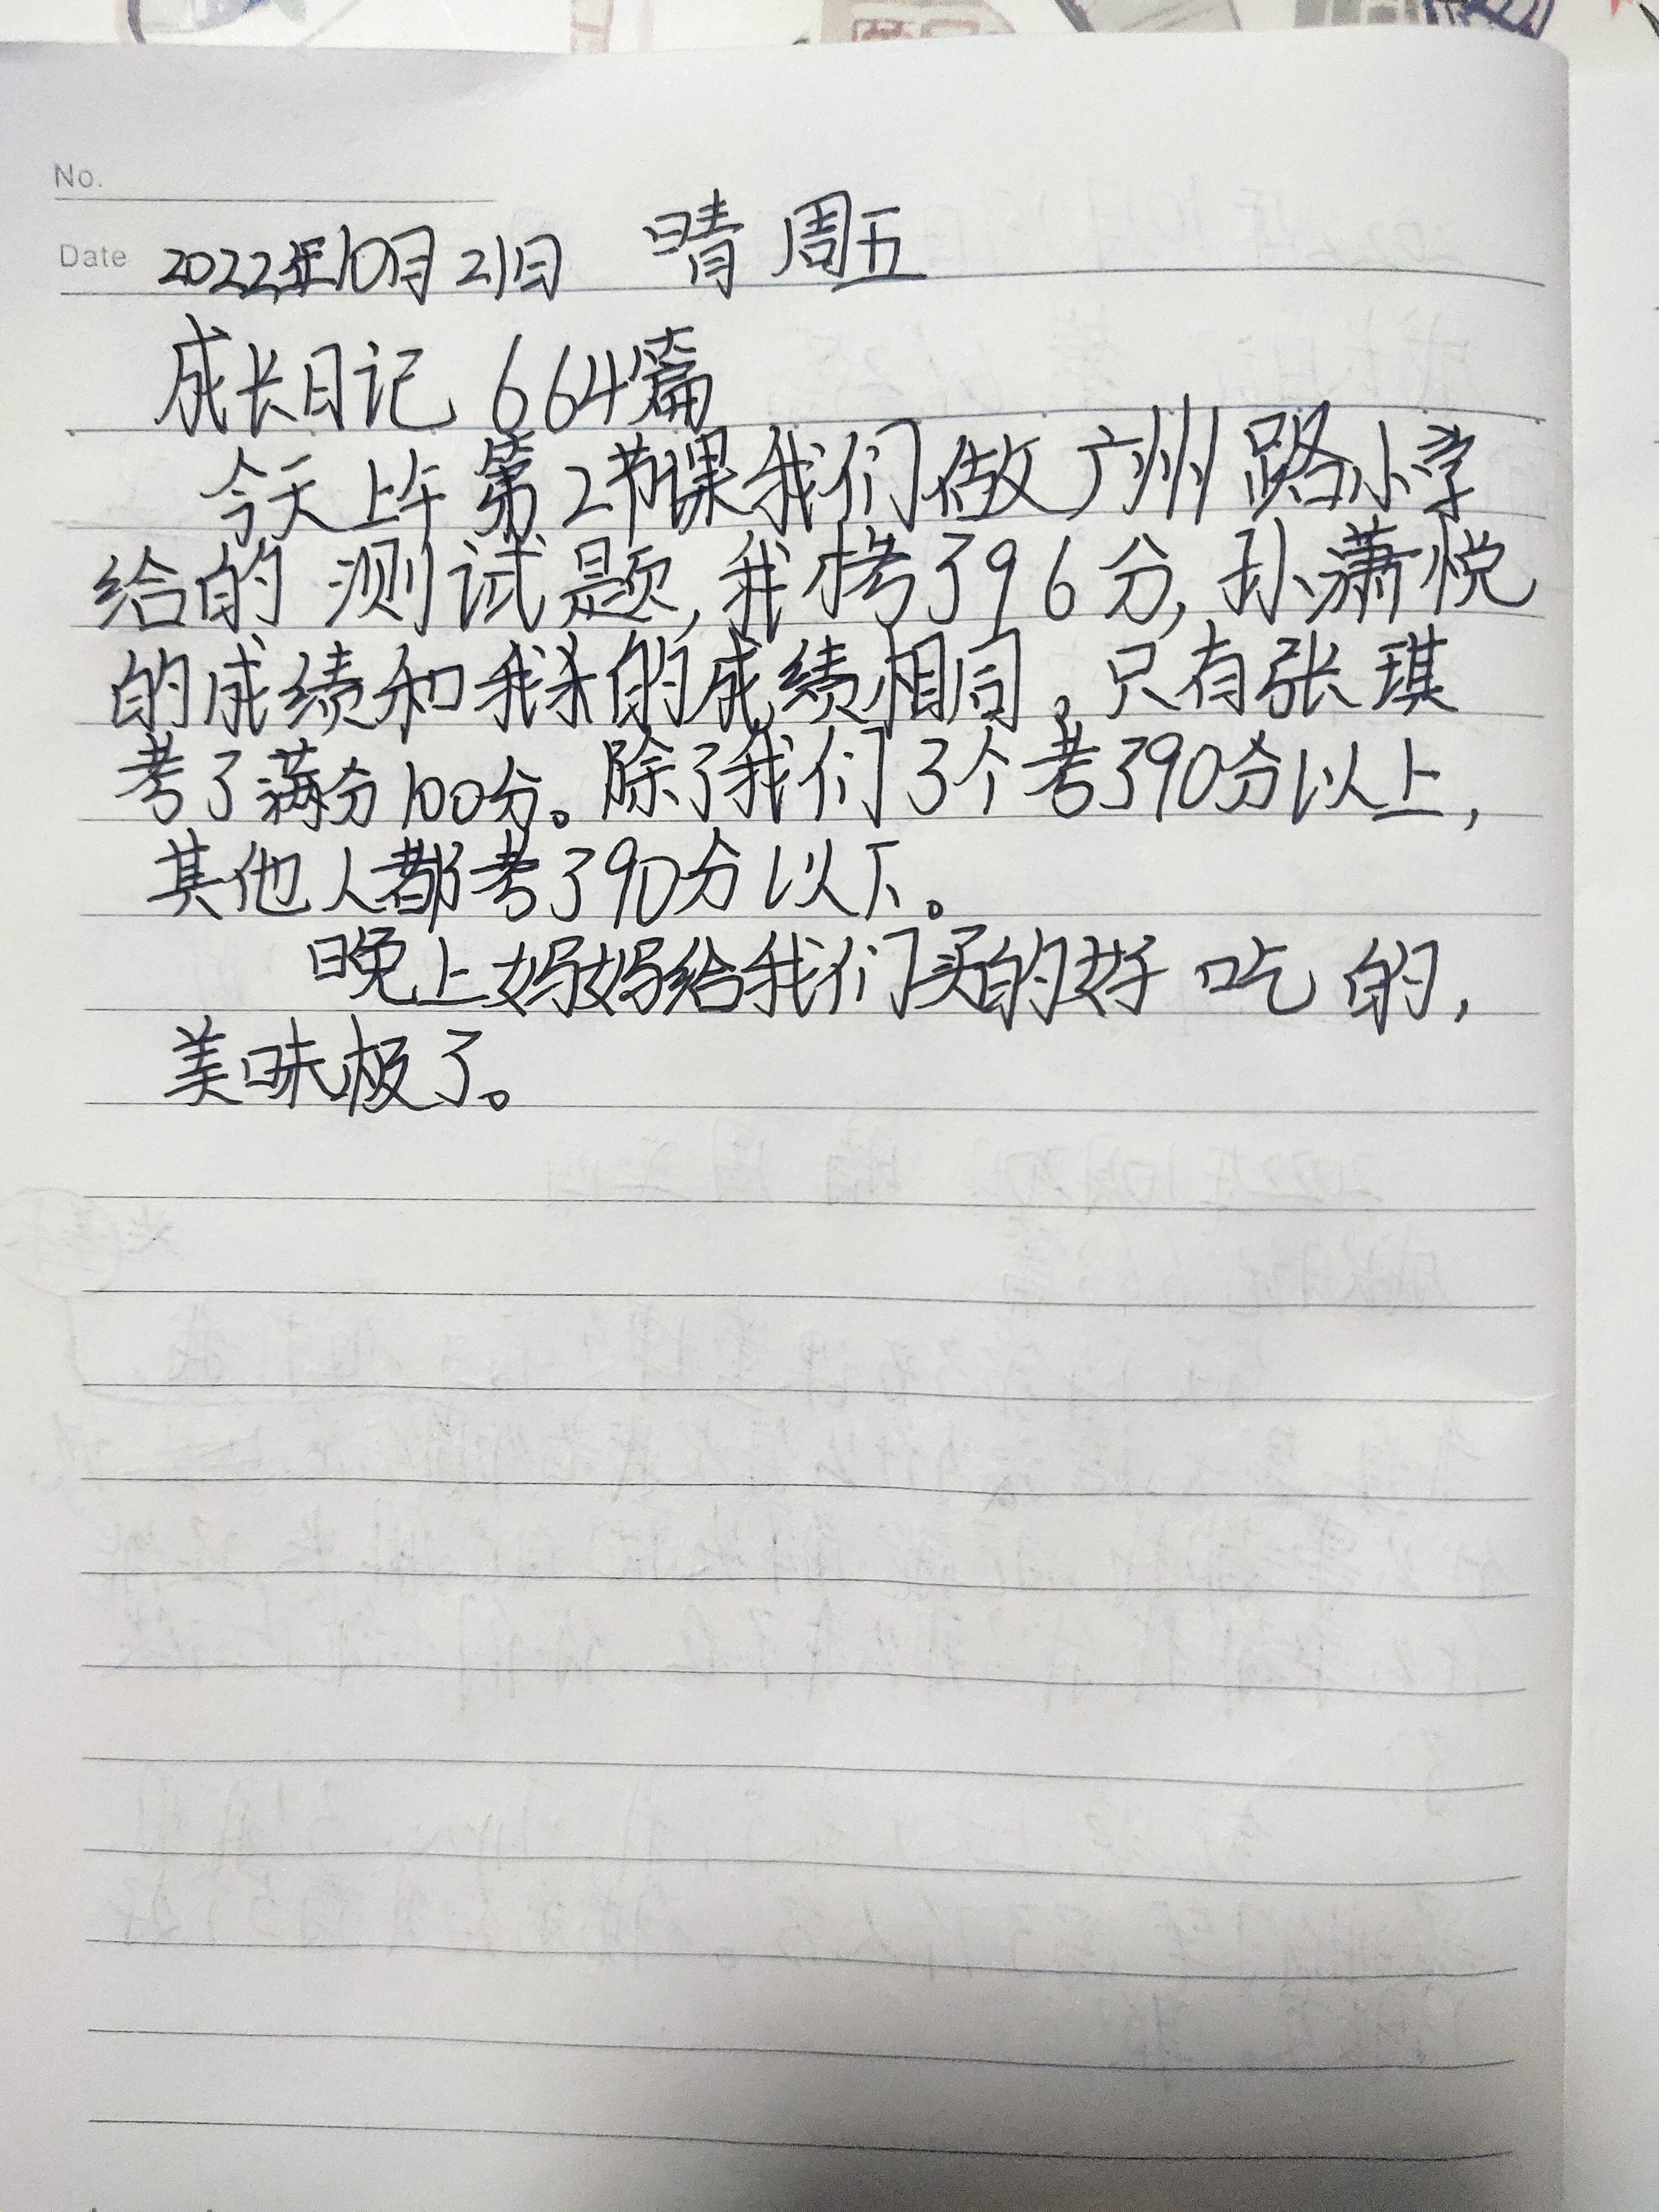 No.
Date 2022年10月21日 晴 周五
成长日记 664篇
今天上午第2节课我们做广州路小学
给的测试题,我考了96分,孙潇悦
的成绩和我的成绩相同。只有张琪
考了满分100分。除了我们3个考了90分以上,
其他人都考了90分以下。
晚上妈妈给我们买的好吃的,
美味极了。